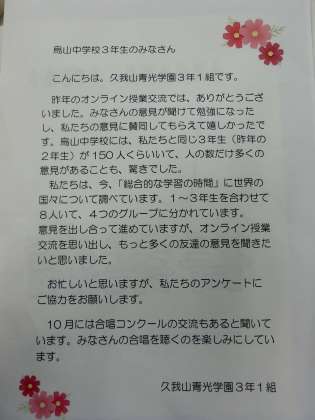 烏山中学校３年生のみなさん
こんにちは。久我山青光学園３年１組です。
昨年のオンライン授業交流では、ありがとうござ
いました。みなさんの意見が聞けて勉強になった
し、私たちの意見に賛同してもらえて嬉しかったで
す。烏山中学校には、私たちと同じ３年生（昨年の
２年生）が 150 人くらいいて、人の数だけ多くの
意見があることも、驚きでした。
私たちは、今、「総合的な学習の時間」に世界の
国々について調べています。１～３年生を合わせて
８人いて、４つのグループに分かれています。
意見を出し合って進めていますが、オンライン授業
交流を思い出し、もっと多くの友達の意見を聞きた
いと思いました。
お忙しいと思いますが、私たちのアンケートに
ご協力をお願いします。
10 月には合唱コンクールの交流もあると聞いて
います。みなさんの合唱を聴くのを楽しみにしてい
ます。
久我山青光学園３年１組